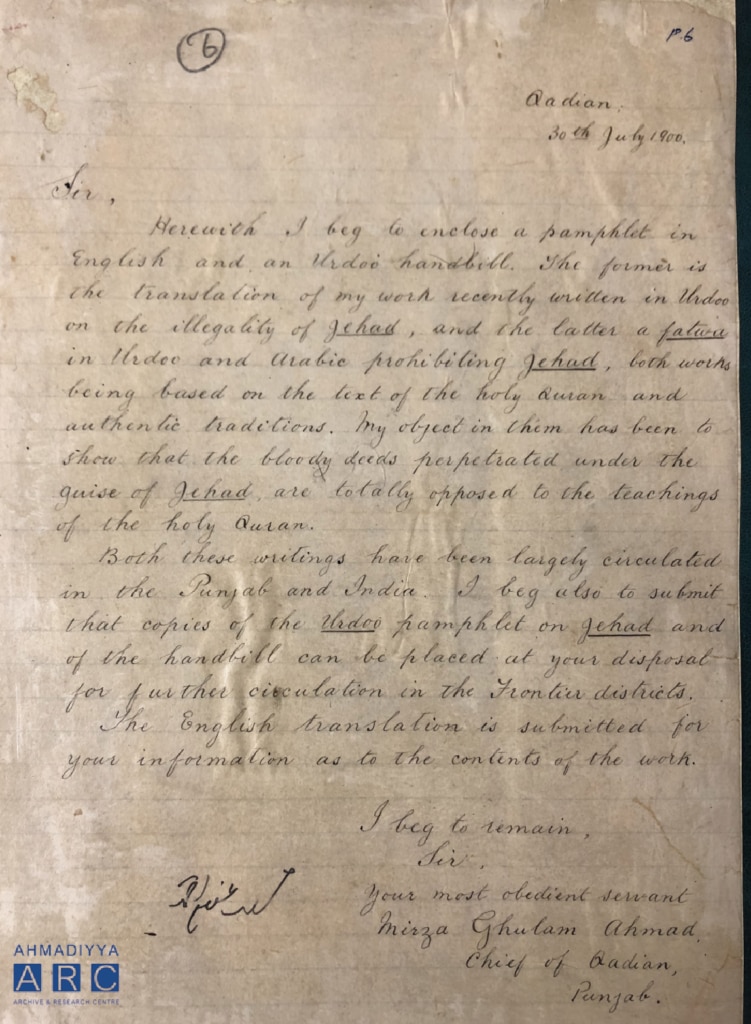 6
P.6
Qadian,
30th July 1900.
Sir,
Herewith I beg to enclose a pamphlet in
English and an Urdoo handbill. The former is
the translation of my work recently written in Urdoo
on the illegality of Jehad, and the latter a fatwa
in Urdoo and Arabic prohibiting Jehad, both works
being based on the text of the holy Quran and
authentic traditions. My object in them has been to
show that the bloody deeds perpetrated under the
guise of Jehad, are totally opposed to the teachings
of the holy Quran.
Both these writings have been largely circulated
in the Punjab and India. I beg also to submit
that copies of the Urdoo pamphlet on Jehad and
of the handbill can be placed at your disposal
for further circulation in the Frontier districts.
The English translation is submitted for
your information as to the contents of the work.
I beg to remain,
Sir,
Your most obedient servant
Mirza Ghulam Ahmad,
Chief of Qadian,
Punjab.
AHMADIYYA
ARC
ARCHIVE & RESEARCH CENTRE